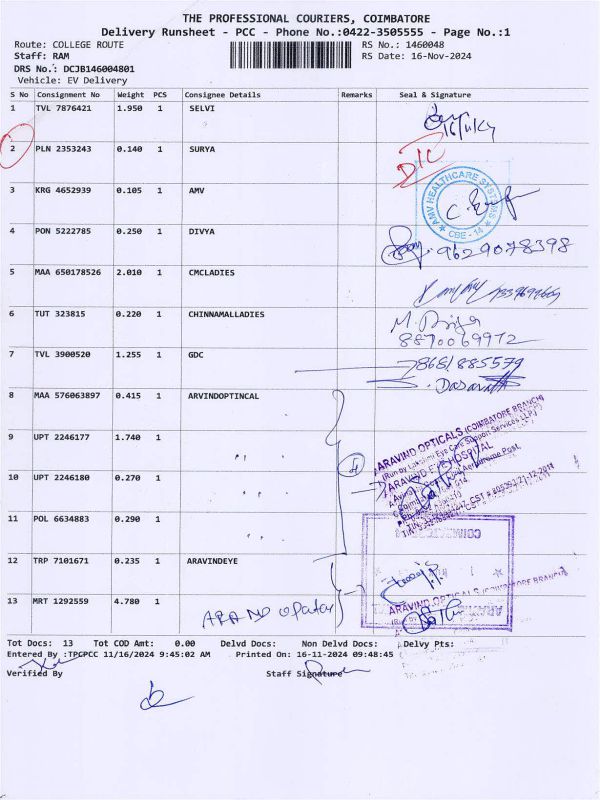 THE PROFESSIONAL COURIERS, COIMBATORE
Delivery Runsheet - PCC - Phone No.:0422-3505555 - Page No.:1
Route: COLLEGE ROUTE RS No.: 1460048
Staff: RAM RS Date: 16-Nov-2024
DRS No.: DCJB146004801
Vehicle: EV Delivery
S No Consignment No Weight PCS Consignee Details Remarks Seal & Signature
1 TVL 7876421 1.950 1 SELVI
16/11/24
2 PLN 2353243 0.140 1 SURYA D/C
3 KRG 4652939 0.105 1 AMV
AMV HEALTHCARE SYSTEMS
CBE - 14
4 PON 5222785 0.250 1 DIVYA 9629078398
5 MAA 650178526 2.010 1 CMCLADIES
6 TUT 323815 0.220 1 CHINNAMALLADIES M. Priya
8870069972
7 TVL 3900520 1.255 1 GDC 8681885579
8 MAA 576063897 0.415 1 ARVINDOPTINCAL
ARAVIND OPTICALS (COIMBATORE BRANCH)
(Run by Lakshmi Eye Care Support Services LLP)
ARAVIND EYE HOSPITAL
9 UPT 2246177 1.740 1 " "
4
10 UPT 2246180 0.270 1 " "
11 POL 6634883 0.290 1 " "
12 TRP 7101671 0.235 1 ARAVINDEYE
ARAVIND OPTICALS (COIMBATORE BRANCH)
13 MRT 1292559 4.780 1
Tot Docs: 13 Tot COD Amt: 0.00 Delvd Docs: Non Delvd Docs: Delvy Pts:
Entered By :TPCPCC 11/16/2024 9:45:02 AM Printed On: 16-11-2024 09:48:45
Verified By Staff Signature